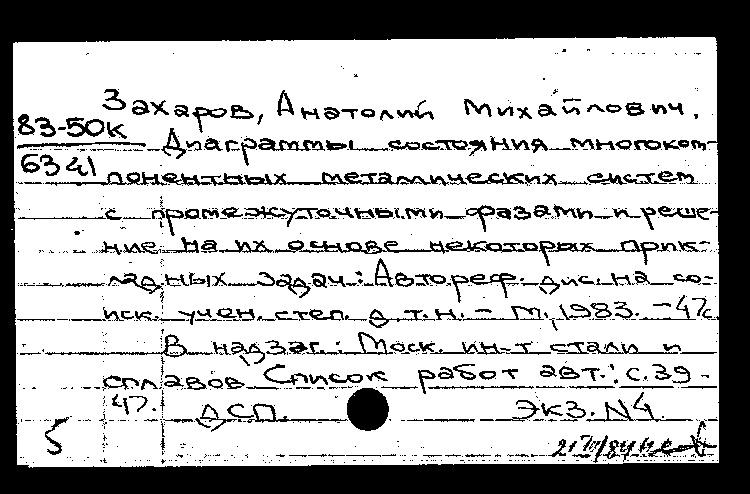 Захаров, Анатолий Михайлович.
83-50к
6341
Диаграммы состояния многоком-
понентных металлических систем
с промежуточными фазами и реше-
ние на их основе некоторых прик-
ладных задач: Автореф. дис. на со-
иск. учен. степ. д.т.н. - М., 1983. - 47с.
В надзаг.: Моск. ин-т стали и
сплавов Список работ авт.: с. 39-
47. ДСП. Экз. N4.
5